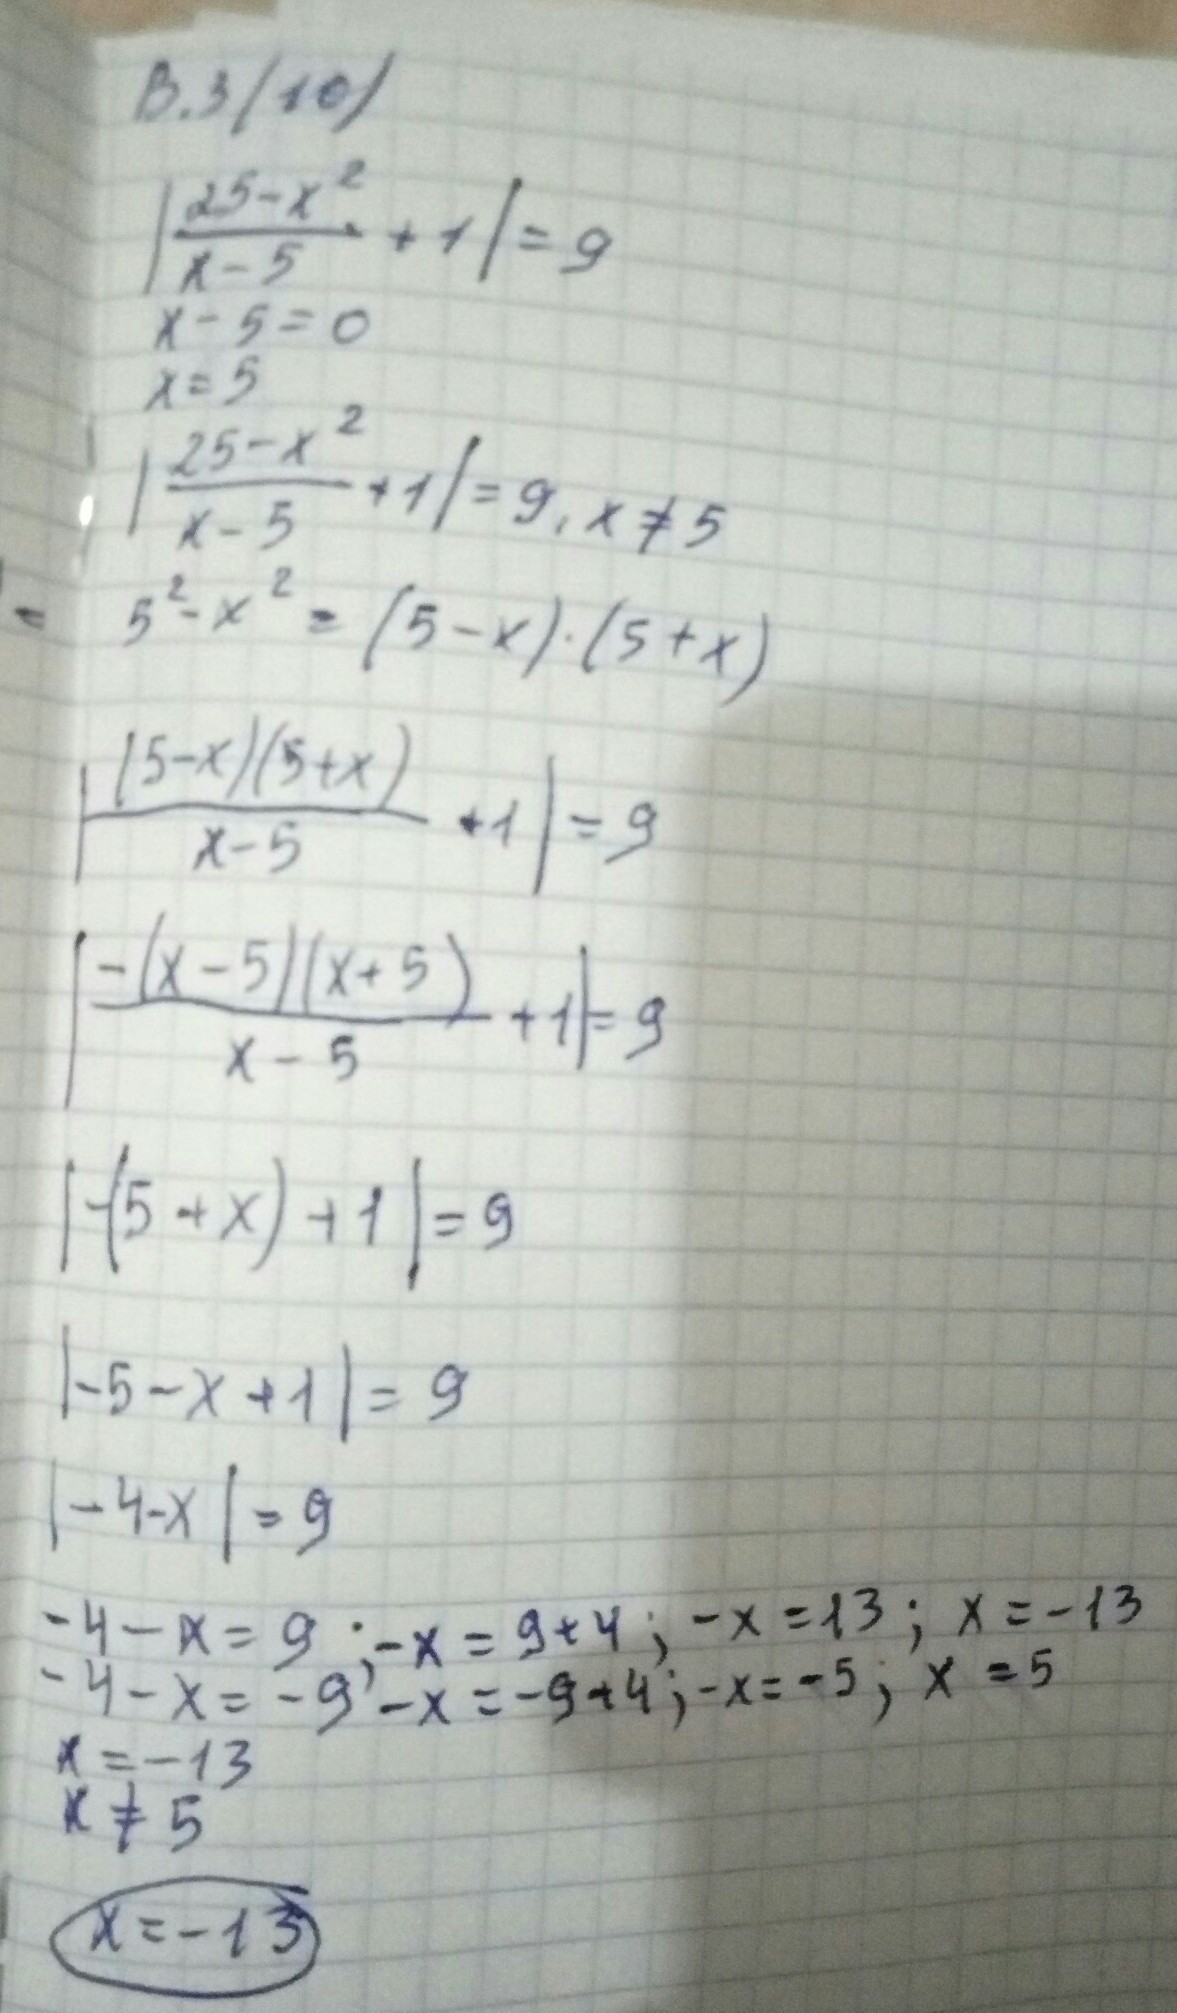 В.3(10)
|25-x²/x-5 + 1| = 9
x-5=0
x=5
|25-x²/x-5 +1| = 9, x≠5
= 5²-x² = (5-x)·(5+x)
|(5-x)(5+x)/x-5 +1| = 9
|-(x-5)(x+5)/x-5 +1| = 9
|-(5+x)+1| = 9
|-5-x+1| = 9
|-4-x| = 9
-4-x=9; -x=9+4; -x=13; x=-13
-4-x=-9; -x=-9+4; -x=-5; x=5
x=-13
x≠5
x=-13